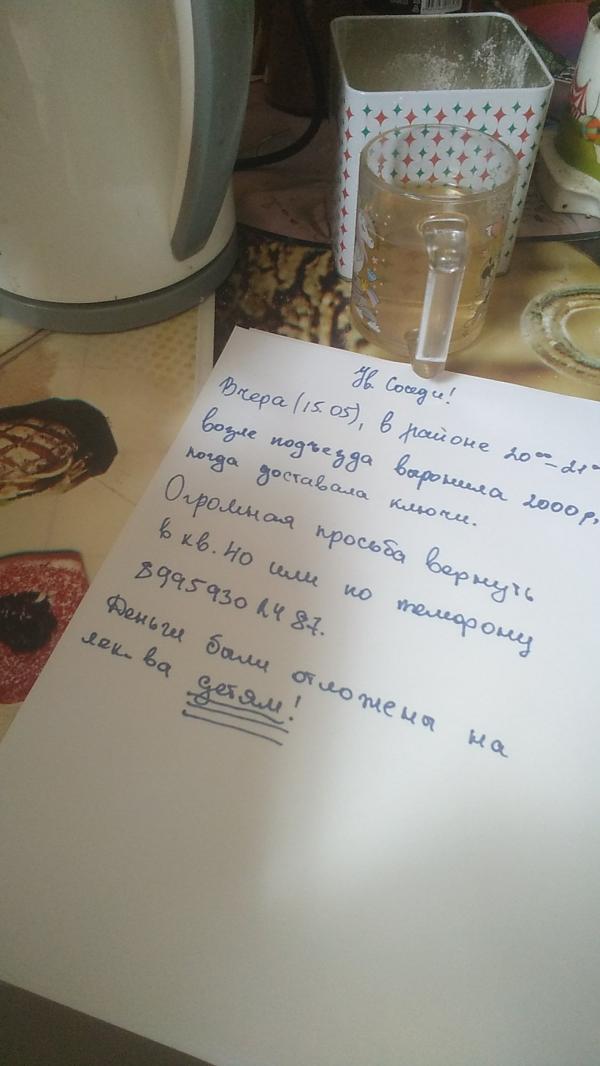 Ув. Соседи!
Вчера (15.05), в районе 20⁰⁰-21⁰⁰
возле подъезда выронила 2000р,
когда доставала ключи.
Огромная просьба вернуть
в кв. 40 или по телефону
89959302487.
Деньги были отложены на
лек-ва детям!